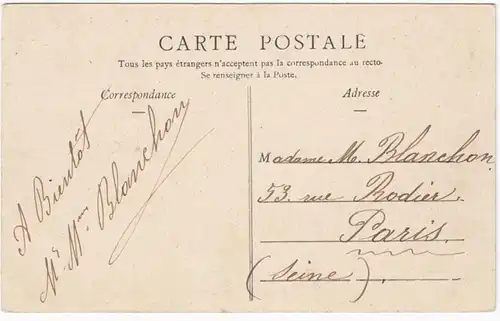 CARTE POSTALE
Tous les pays étrangers n'acceptent pas la correspondance au recto.
Se renseigner à la Poste.
Correspondance
A Bientôt
Mr. Mme Blanchon
Adresse
Madame M. Blanchon
53. rue Rodier.
Paris.
(Seine).